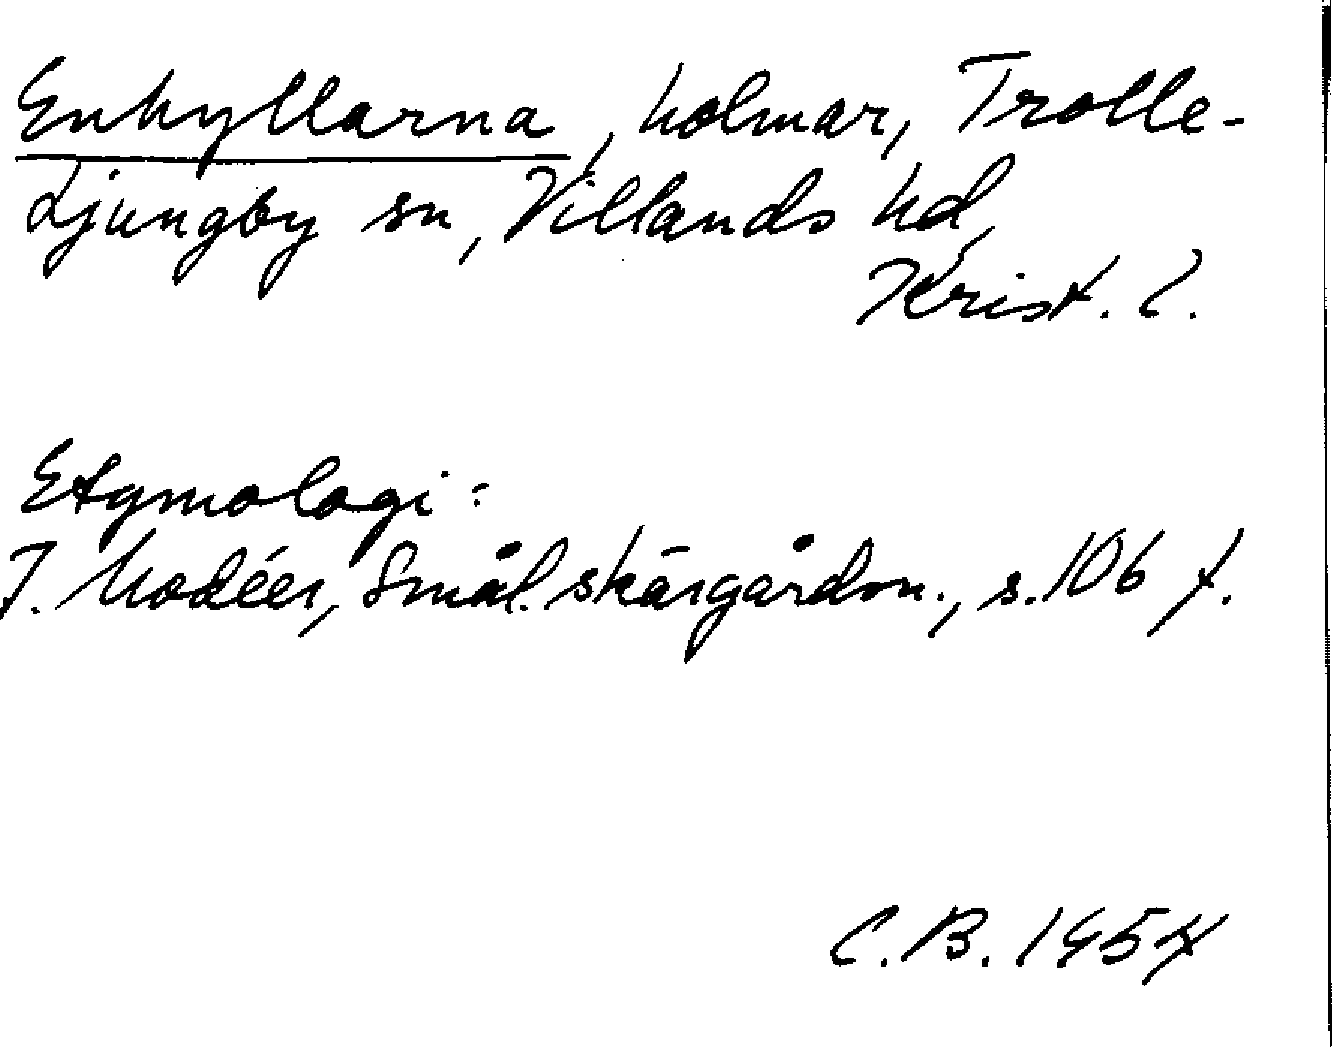 Enhyllarna, holmar, Trolle-
Ljungby sn, Villands hd,
Krist. l.
Etymologi:
I. Modéer, Smål. skärgårdsn., s. 106 f.
C. B. 1954